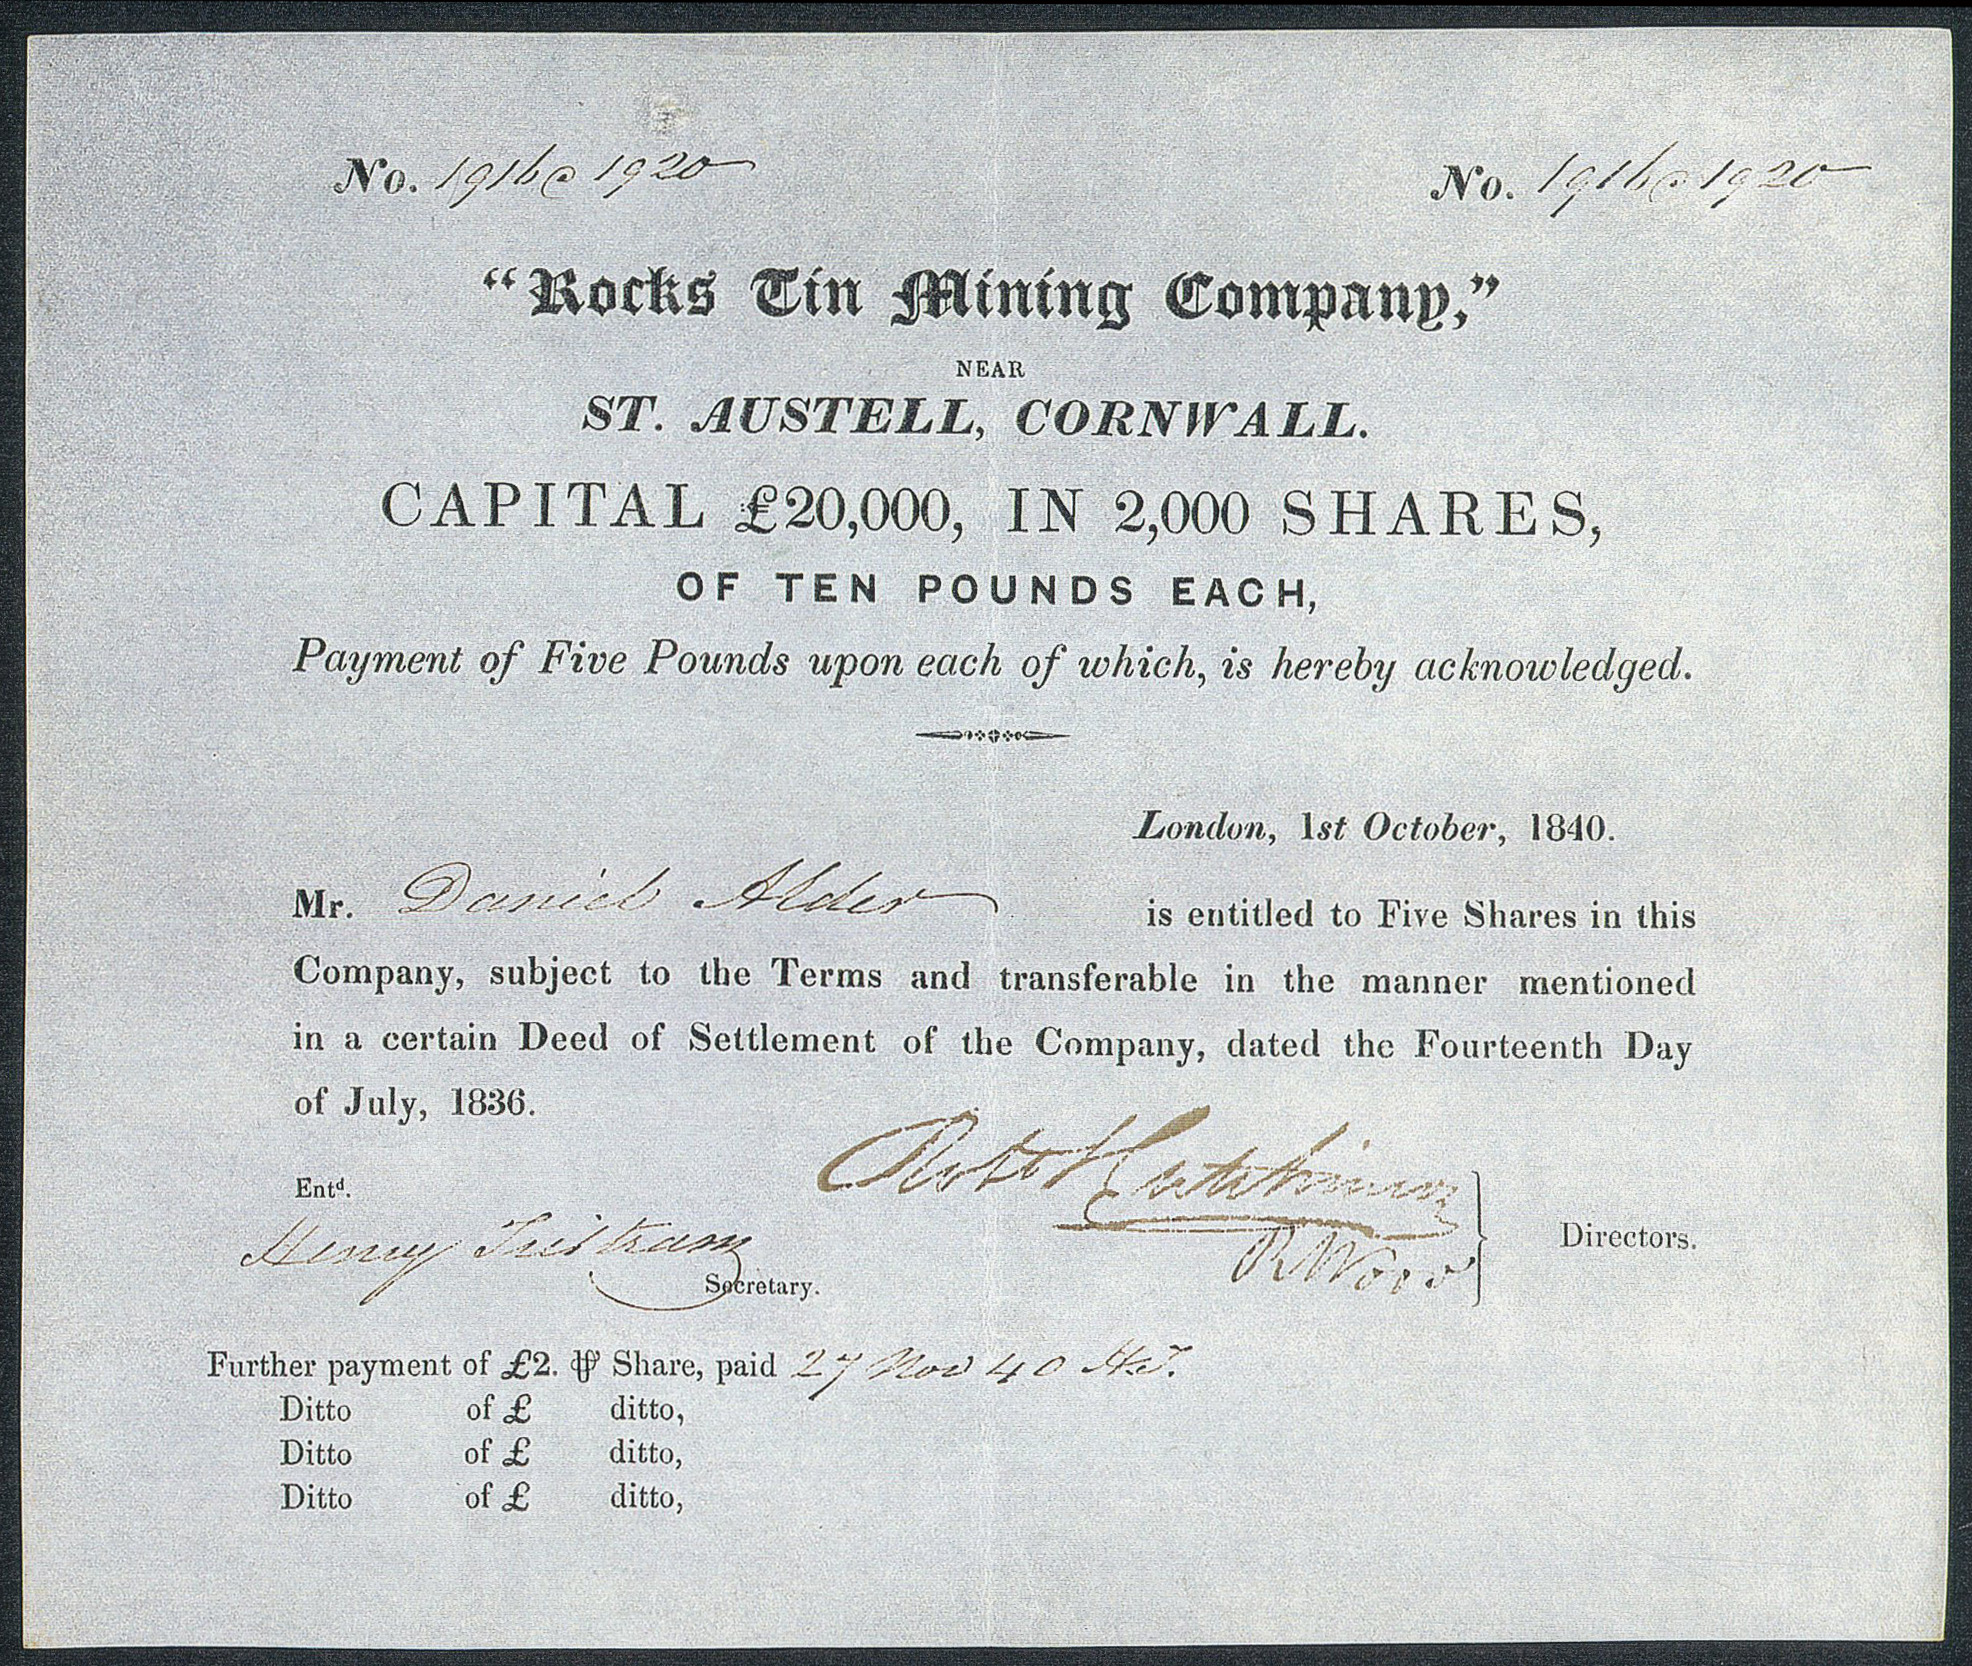 No. 1916 @ 1920 No. 1916 @ 1920
"Rocks Tin Mining Company,"
NEAR
ST. AUSTELL, CORNWALL.
CAPITAL £20,000, IN 2,000 SHARES,
OF TEN POUNDS EACH,
Payment of Five Pounds upon each of which, is hereby acknowledged.
London, 1st October, 1840.
Mr. Daniel Alder is entitled to Five Shares in this
Company, subject to the Terms and transferable in the manner mentioned
in a certain Deed of Settlement of the Company, dated the Fourteenth Day
of July, 1836.
Entd.
Robt Hutchinson
Henry Tristram
Secretary.
R Wood
Directors.
Further payment of £2. ⅌ Share, paid 27 Nov 40 H.T.
Ditto of £ ditto,
Ditto of £ ditto,
Ditto of £ ditto,